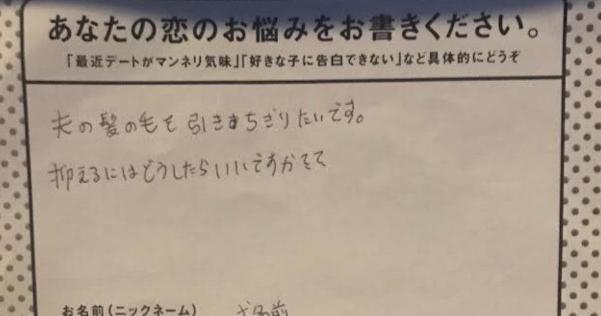 あなたの恋のお悩みをお書きください。
「最近デートがマンネリ気味」「好きな子に告白できない」など具体的にどうぞ
夫の髪の毛を引きちぎりたいです。
抑えるにはどうしたらいいですか
お名前(ニックネーム)